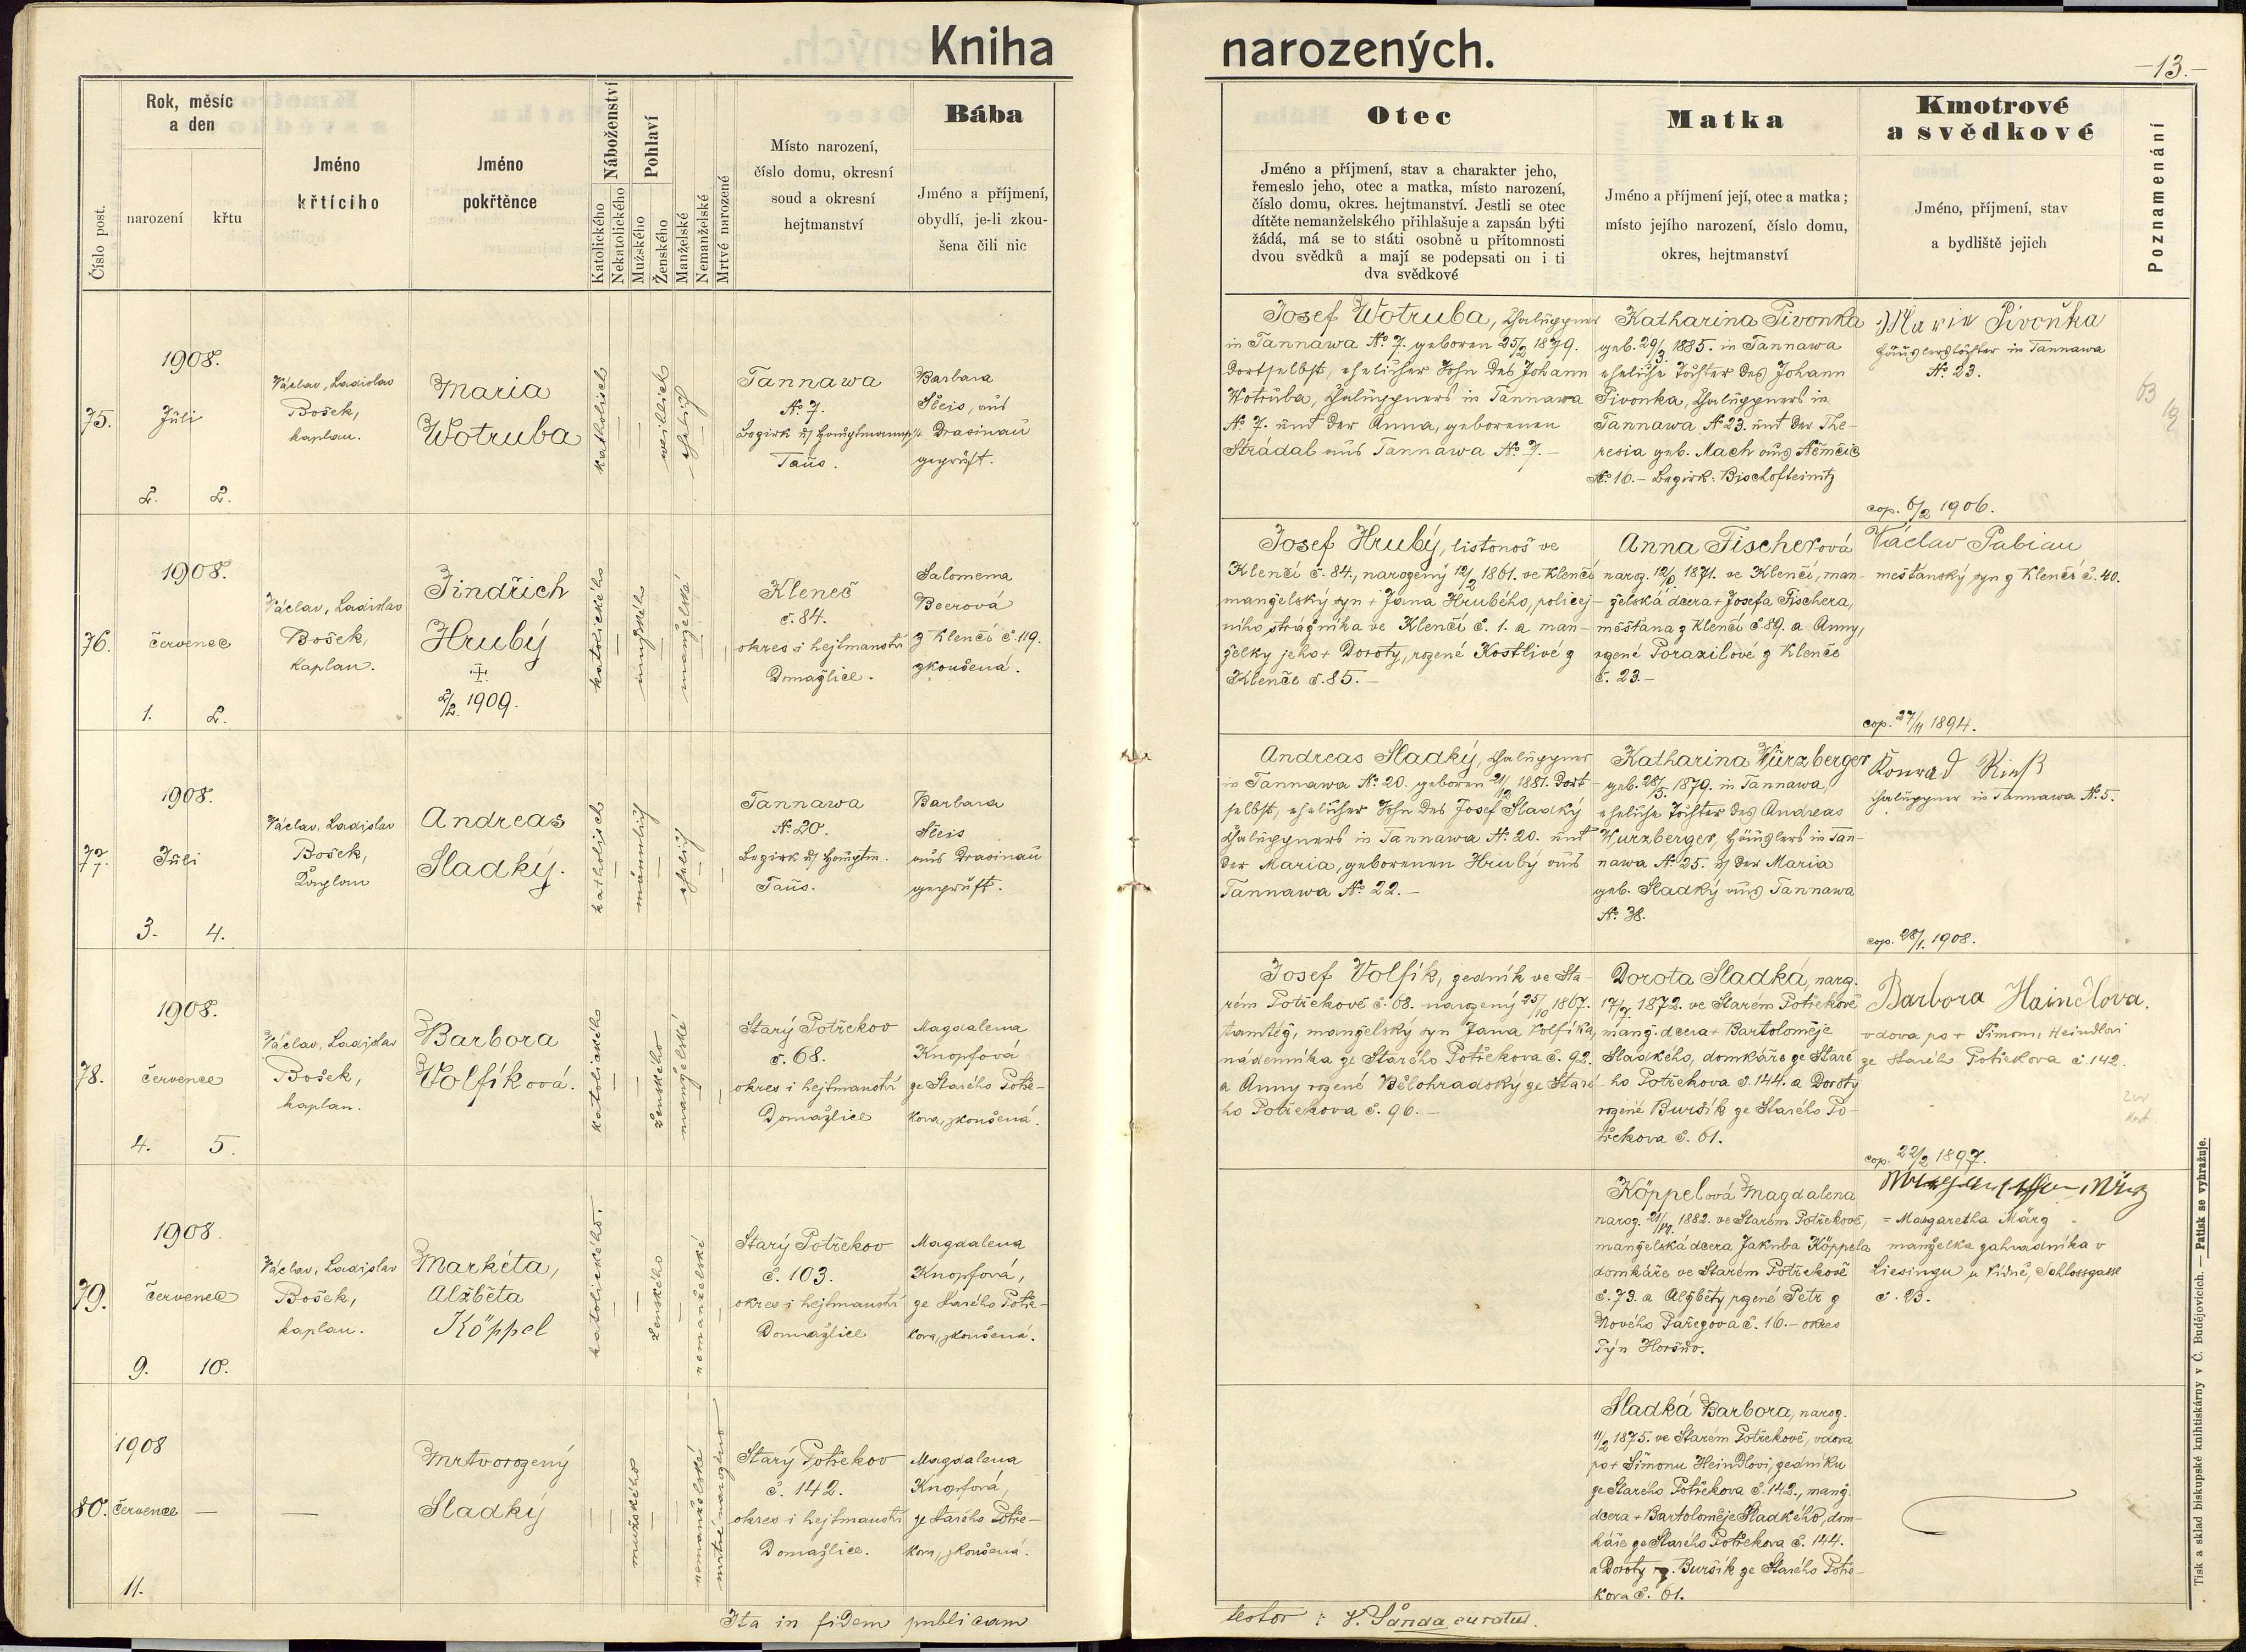 Kniha narozených.
—13.—
Číslo post.
Rok, měsíc
a den
narození
křtu
Jméno
křtícího
Jméno
pokřtěnce
Náboženství
Katolického
Nekatolického
Pohlaví
Mužského
Ženského
Manželské
Nemanželské
Mrtvé narozené
Místo narození,
číslo domu, okresní
soud a okresní
hejtmanství
Bába
Jméno a příjmení,
obydlí, je-li zkou-
šena čili nic
Otec
Jméno a příjmení, stav a charakter jeho,
řemeslo jeho, otec a matka, místo narození,
číslo domu, okres. hejtmanství. Jestli se otec
dítěte nemanželského přihlašuje a zapsán býti
žádá, má se to státi osobně u přítomnosti
dvou svědků a mají se podepsati on i ti
dva svědkové
Matka
Jméno a příjmení její, otec a matka;
místo jejího narození, číslo domu,
okres, hejtmanství
Kmotrové
a svědkové
Jméno, příjmení, stav
a bydliště jejich
Poznamenání
75.
1908.
Juli
2.
2.
Václav, Ladislav
Bošek,
kaplan.
Maria
Wotruba
katholisch
—
—
weiblich
ehelich
—
Tannawa
№ 7.
Bezirk u Hauptmannsch.
Taus.
Barbara
Sleis, aus
Drasinau
geprüft.
Josef Wotruba, Chaluppner
in Tannawa № 7. geboren 25/2 1879.
dortselbst, ehelicher Sohn des Johann
Wotruba, Chaluppners in Tannawa
№ 7. und der Anna, geborenen
Strádal aus Tannawa № 7.—
Katharina Pivonka
geb. 29/3. 1885. in Tannawa
eheliche Tochter des Johann
Pivonka, Chaluppners in
Tannawa № 23. und der The-
resia geb. Mach aus Němčic
№ 16.— Bezirk: Bischofteinitz
Marie Pivoňka
Häuslerstochter in Tannawa
№ 23.
cop. 6/2 1906.
76.
1908.
červenec
1.
2.
Václav, Ladislav
Bošek,
kaplan.
Jindřich
Hrubý
✠
2/2. 1909.
katolického
—
mužského
—
manželské
—
Kleneč
č. 84.
okres i hejtmanství
Domažlice.
Salomena
Beerová
z Klenčí č. 119.
zkoušená.
Josef Hrubý, listonoš ve
Klenčí č. 84., narozený 12/2 1861. ve Klenčí
manželský syn + Jana Hrubého, policej-
ního strážníka ve Klenčí č. 1. a man-
želky jeho + Doroty, rozené Kostlivé z
Klenče č. 85.—
Anna Fischerová
1871. ve Klenčí, man-
želská dcera + Josefa Fischera,
měšťana z Klenčí č. 89. a Anny,
rozené Porazilové z Klenče
č. 23.—
Václav Pabian
mešťanský syn z Klenčí č. 40.
cop. 27/11 1894.
77.
1908.
Juli
3.
4.
Václav, Ladislav
Bošek,
Kaplan
Andreas
Sladký.
katholisch
—
männlich
—
ehelich
—
Tannawa
№ 20.
Bezirk u Hauptm.
Taus.
Barbara
Sleis
aus Drasinau
geprüft.
Andreas Sladký, Chaluppner
in Tannawa № 20. geboren 21/12 1881. dort-
selbst, ehelicher Sohn des Josef Sladký
Chaluppners in Tannawa № 20. und
der Maria, geborenen Hrubý aus
Tannawa № 22.—
Katharina Würzberger
geb. 28/5. 1879. in Tannawa,
eheliche Tochter des Andreas
Wurzberger, Häuslers in Tan-
nawa № 25. u der Maria
geb. Sladký aus Tannawa
№ 38.
Konrad
Chaluppner in Tannawa № 5.
cop. 28/1. 1908.
78.
1908.
července
4.
5.
Václav, Ladislav
Bošek,
kaplan.
Barbora
Volfíková.
katolického
—
—
ženského
manželské
—
Starý Potřekov
č. 68.
okres i hejtmanství
Domažlice
Magdalena
Knopfová
ze Starého Potře-
kova, zkoušená.
Josef Volfík, zedník ve Sta-
rém Potřekově č. 68. narozený 25/10 1867.
tamtéž, manželský syn Jana Volfíka,
nádenníka ze Starého Potřekova č. 92.
a Anny rozené Bělohradský ze Staré-
ho Potřekova č. 96.—
Dorota Sladká, naroz.
17/7. 1872. ve Starém Potřekově
manž. dcera + Bartoloměje
Sladského, domkáře ze Staré-
ho Potřekova č. 144. a Doroty
rozené Buršík ze Starého Po-
třekova č. 61.
Barbora Haindlova.
vdova po + Šimonu Heindlovi
ze Starého Potřekova č. 142.
cop. 22/2 1897.
79.
1908.
červenec
9.
10.
Václav, Ladislav
Bošek,
kaplan.
Markéta,
Alžběta
Köppel
katolického.
—
—
ženského
—
nemanželské
—
Starý Potřekov
č. 103.
okres i hejtmanství
Domažlice
Magdalena
Knopfová,
ze Starého Potře-
kova, zkoušená.
Köppelová Magdalena
1882. ve Starém Potřekově,
manželská dcera Jakuba Köppela
domkáře ve Starém Potřekově
č. 73. a Alžběty rozené Petr z
Nového Pařezova č. 16.— okres
Týn Horšův.
= Margaretha Märg
manželka zahradníka v
Liesingu u Vídně, Schlossgasse
č. 23.
80.
1908
července
11.
—
—
Mrtvorozený
Sladký
—
—
mužského
—
—
nemanželské
mrtvé narozeno
Starý Potřekov
č. 142.
okres i hejtmanství
Domažlice.
Magdalena
Knopfová,
ze Starého Potře-
kova, zkoušená.
Sladká Barbora, naroz.
11/2 1875. ve Starém Potřekově, vdova
po + Šimonu Heindlovi, zedníku
ze Starého Potřekova č. 142., manž.
dcera + Bartoloměje Sladkého, dom-
káře ze Starého Potřekova č. 144.
a Doroty roz. Buršík ze Starého Potře-
kova č. 61.
Ita in fidem publicam
testor : V. Šanda curatus.
Tisk a sklad biskupské knihtiskárny v Č. Budějovicích. — Patisk se vyhražuje.